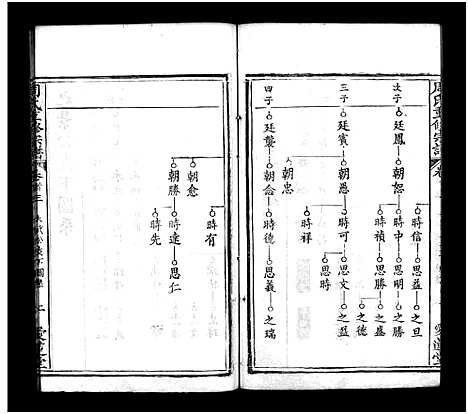 周氏重修宗譜
時信 思益 之旦
次子 廷鳳 朝恕 時中 思明 之勝
時禎 思勝 之盛
之德
三子 廷賓 朝愚 時可 思文 之益
思時
時祥
朝忠
四子 廷襲 朝念 時德 思義 之瑞
時有
朝愈
朝勝 時達 思仁
時先
周氏重修宗譜